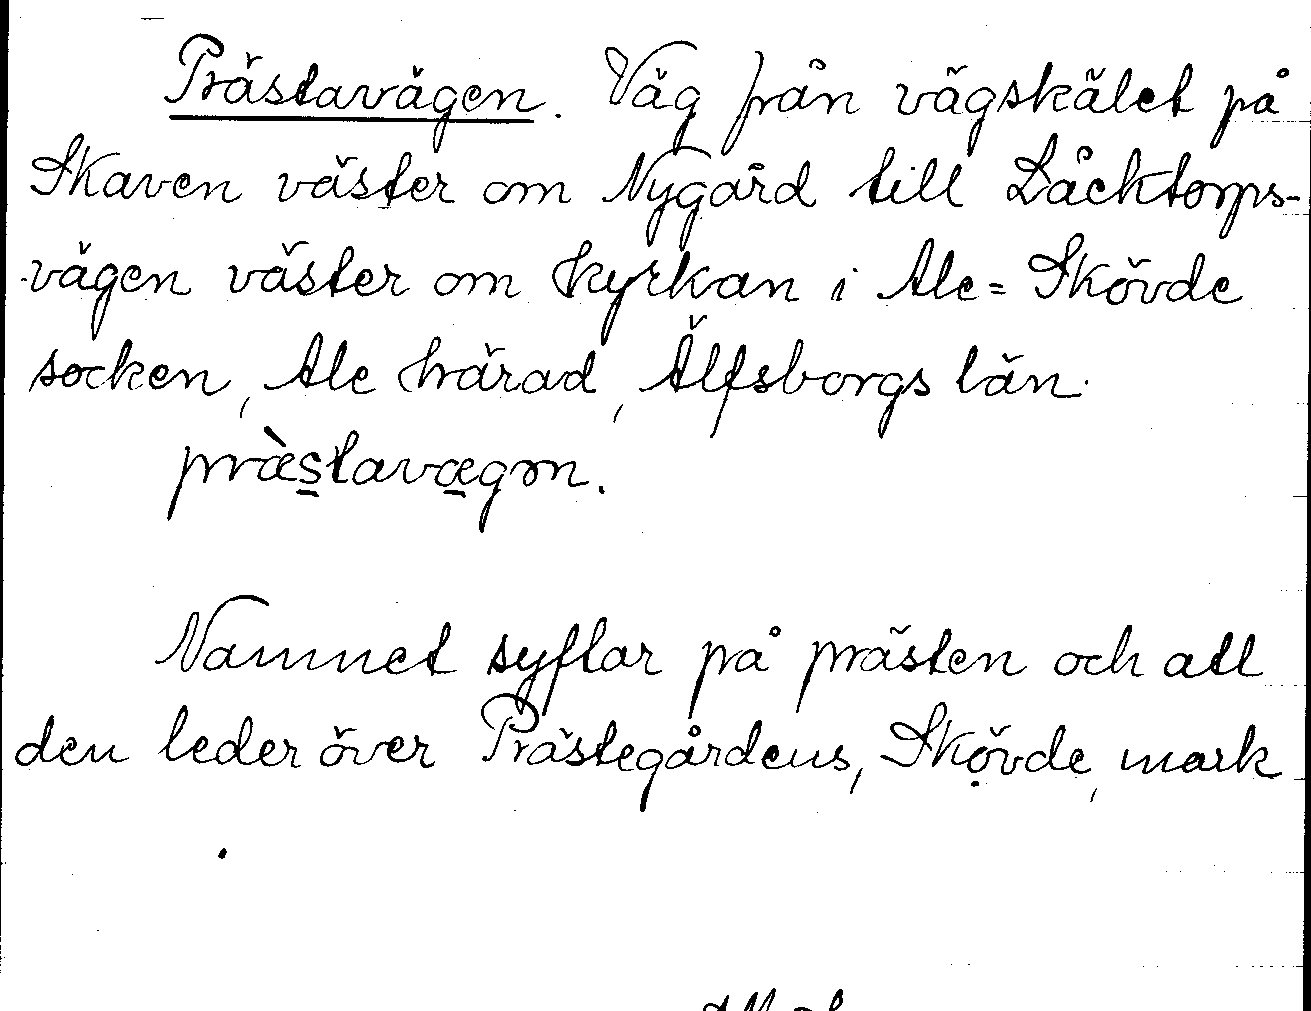 Prästavägen. Väg från vägskälet på
Skaven väster om Nygård till Dåcktorps-
vägen väster om kyrkan i Ale=Skövde
socken, Ale härad, Älfsborgs län.
præ̀stavægən.
Namnet syftar på prästen och att
den leder över Prästegårdens, Skövde, mark